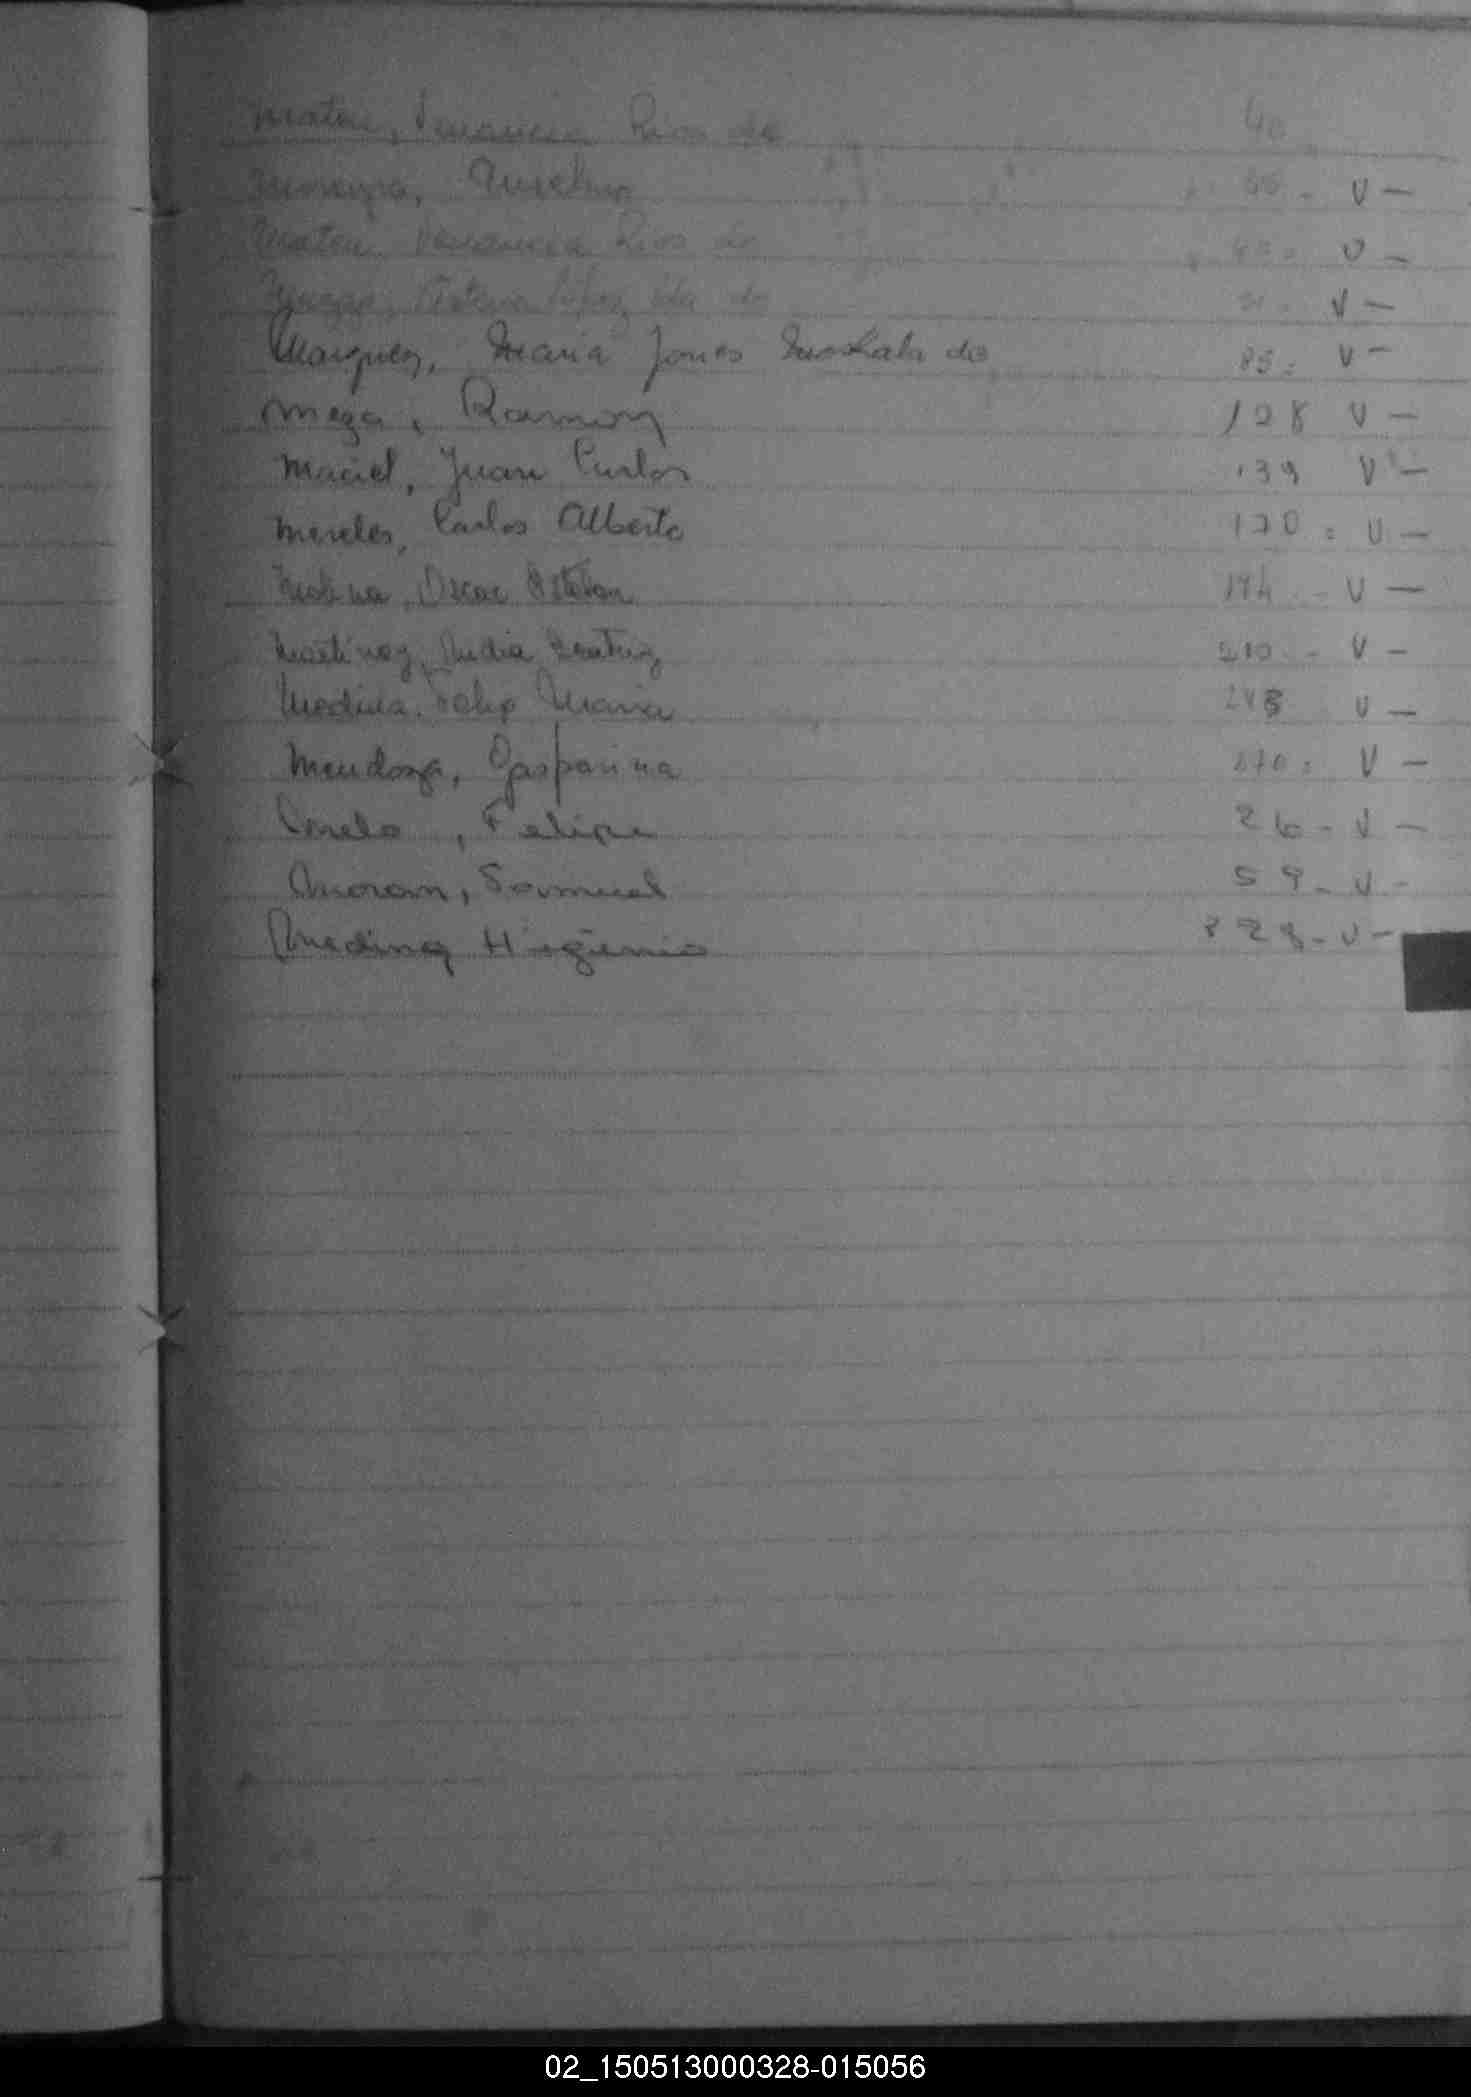 Mateu, Venancia Rios de 40
Aurelino 66 - V -
Mateu Venancia Rios de 40 - V -
Lopez Vda de V -
Marquez, Maria Jones de 85 = V -
Meza, Ramon 128 V -
Maciel, Juan Carlos 139 V -
Mereles, Carlos Alberto 170 = V -
Molina, Oscar Esteban 174 - V -
Martinez, Beatriz 210 - V -
Medina, Maria 248 V -
Mendoza, Gasparina 270 = V -
Melo, Felipe 26 - V -
Moran, Samuel 59 - V -
Medina Higienio V -
02_150513000328-015056